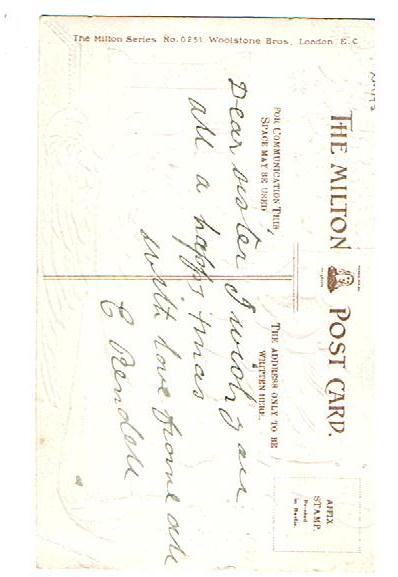 THE MILTON POST CARD.
FOR COMMUNICATION THIS
SPACE MAY BE USED
THE ADDRESS ONLY TO BE
WRITTEN HERE.
AFFIX
STAMP.
Printed
in Berlin.
Dear sister I wish you
all a happy xmas
with love from all
C Rendell
The Milton Series No. 0251 Woolstone Bros., London E.C.